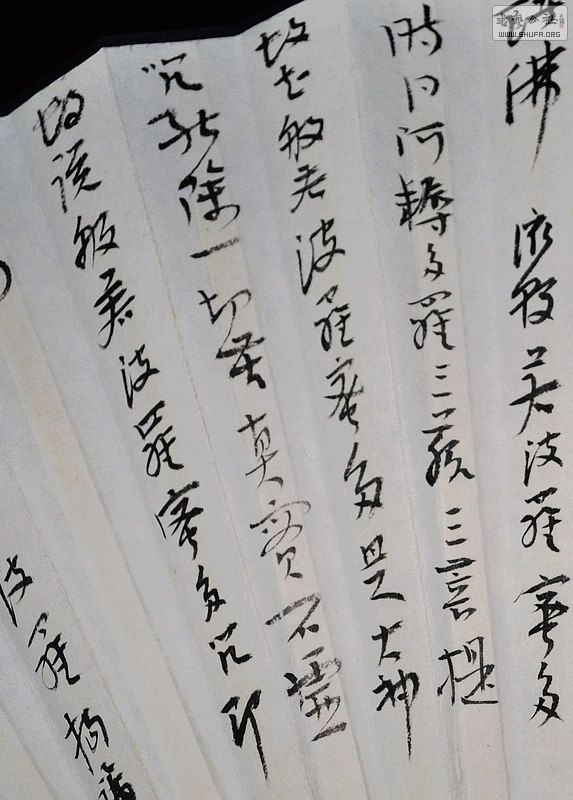 佛 依般若波羅蜜多
阿耨多羅三藐三菩提
故知般若波羅蜜多是大神
咒能除一切苦真實不虛
故說般若波羅蜜多咒即
波羅揭諦
書藝公社
WWW.SHUFA.ORG